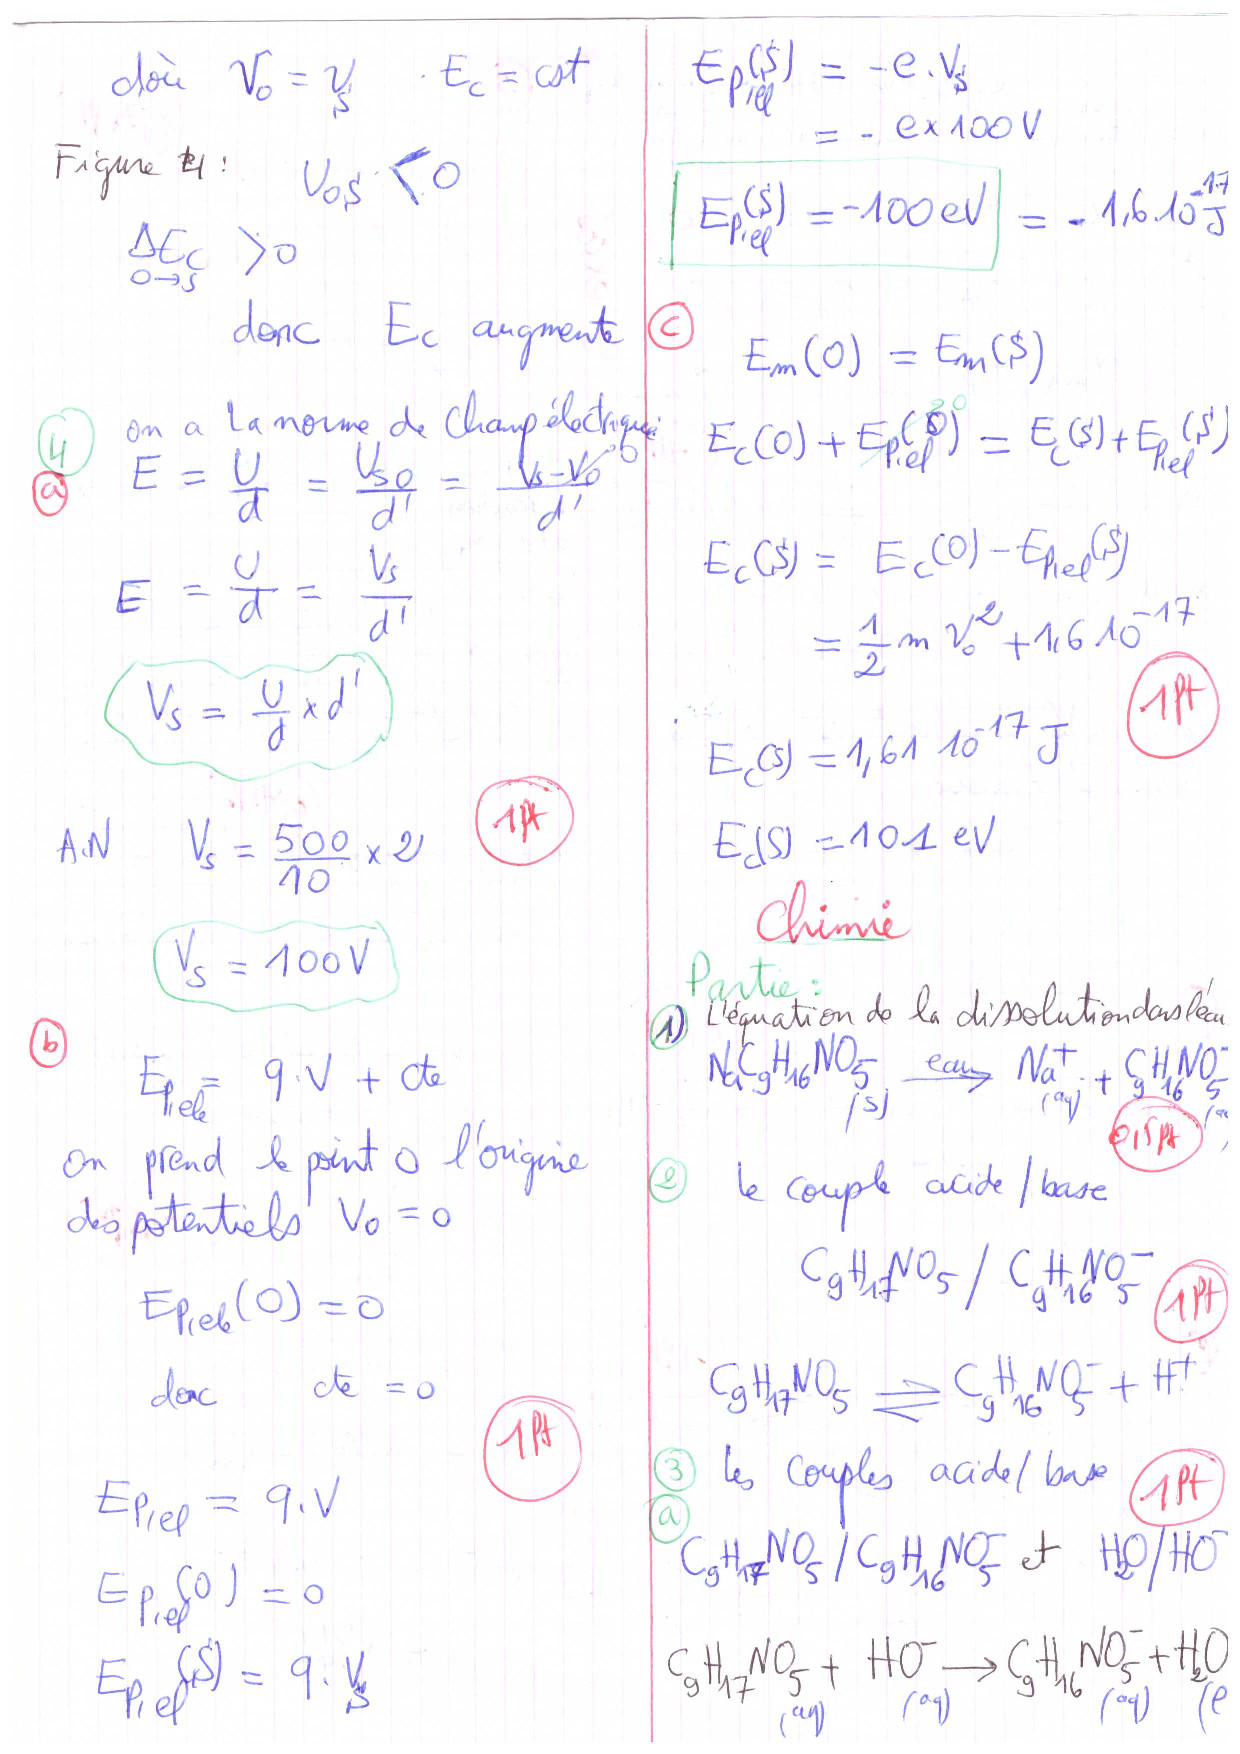 doù V₀ = V_S . Ec = cst
Figure 4 :
U₀S < 0
ΔEc > 0
0→S
donc Ec augmente
4 on a la norme de champ électrique
a E = U/d = U_S0/d' = (V_S - V₀)/d'
0
E = U/d = V_S/d'
V_S = U/d × d'
1pt
A.N V_S = 500/10 × 2
V_S = 100V
b
Ep,ele = q.V + cte
on prend le point O l'origine
des potentiels V₀ = 0
Ep,ele(O) = 0
donc cte = 0
1pt
Ep,el = q.V
Ep,el(O) = 0
Ep,el(S) = q.V_S
Ep,el(S) = -e.V_S
= - e×100V
Ep,el(S) = -100eV = - 1,6.10⁻¹⁷J
c
Em(O) = Em(S)
Ec(O) + Ep,el(O) = Ec(S) + Ep,el(S)
Ec(S) = Ec(O) - Ep,el(S)
= 1/2 m V₀² + 1,6 10⁻¹⁷
1pt
Ec(S) = 1,61 10⁻¹⁷ J
Ec(S) = 101 eV
Chimie
Partie :
1) L'équation de la dissolution dans l'eau
NaC₉H₁₆NO₅ (s) eau→ Na⁺ (aq) + C₉H₁₆NO₅⁻
0,5pt
2 le couple acide/base
C₉H₁₇NO₅ / C₉H₁₆NO₅⁻
1pt
C₉H₁₇NO₅ ⇌ C₉H₁₆NO₅⁻ + H⁺
3 les couples acide/base
1pt
a
C₉H₁₇NO₅ / C₉H₁₆NO₅⁻ et H₂O/HO⁻
C₉H₁₇NO₅ (aq) + HO⁻ (aq) → C₉H₁₆NO₅⁻ (aq) + H₂O (l